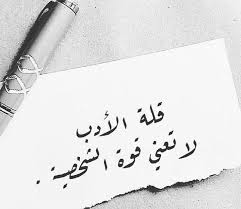 قلة الأدب
لا تعني قوة الشخصية .